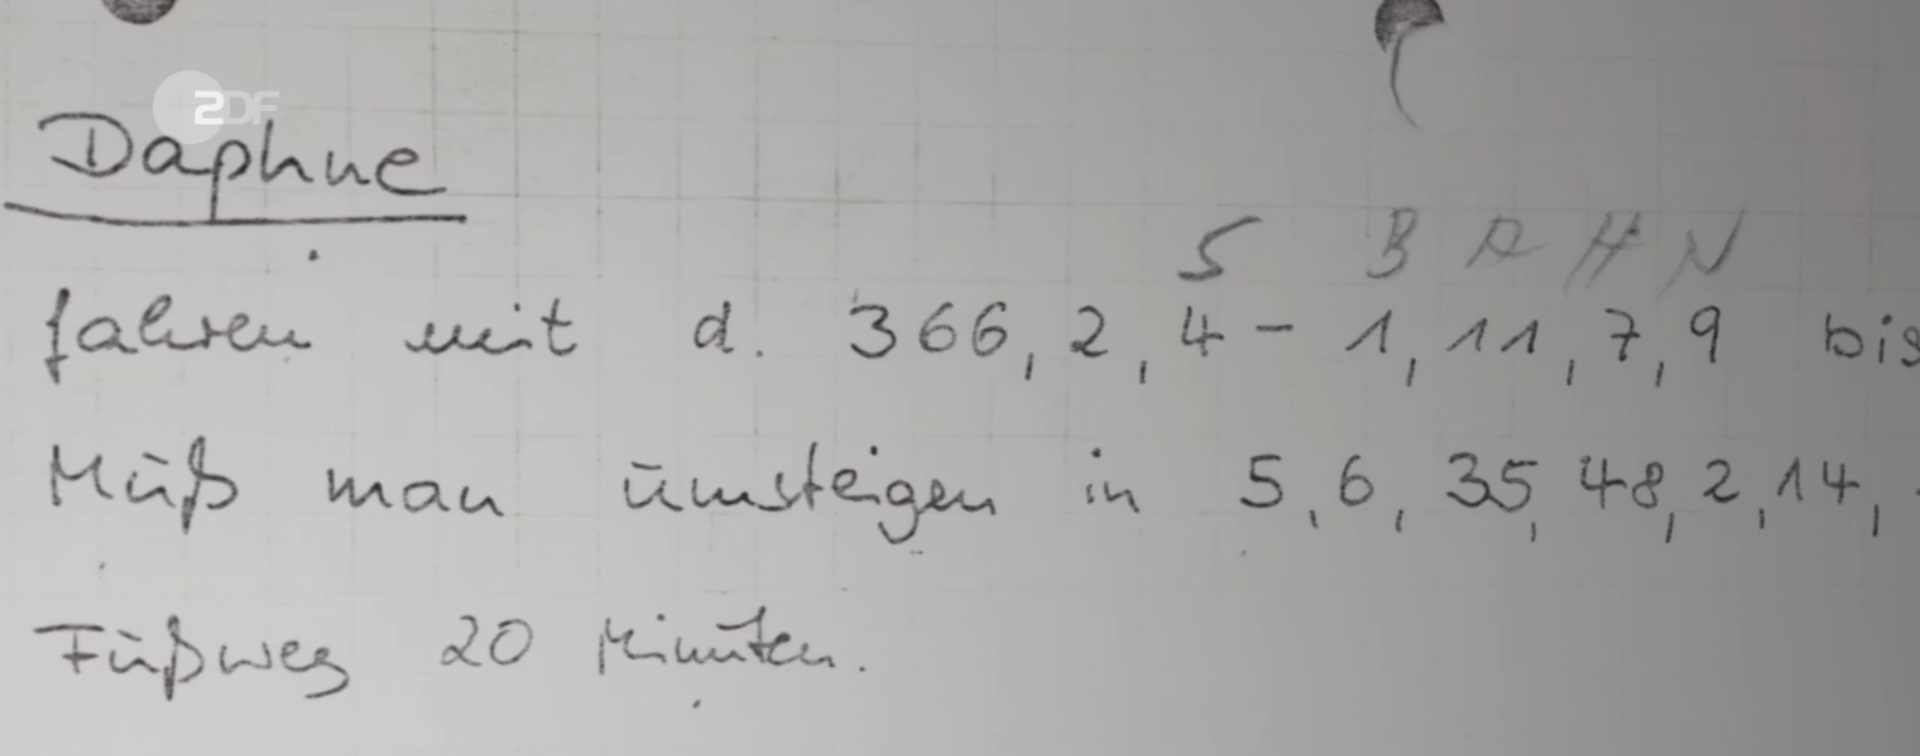 ZDF
Daphne
S B A H N
fahren mit d. 366, 2, 4 - 1, 11, 7, 9 bis
Muß man umsteigen in 5, 6, 35, 48, 2, 14,
Fußweg 20 Minuten.